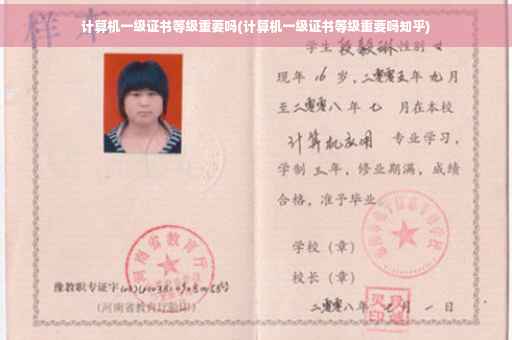 计算机一级证书等级重要吗(计算机一级证书等级重要吗知乎)
样本
学生段毅琳性别女
现年16岁，二零零五年九月
至二零零八年七月在本校
计算机应用 专业学习，
学制三年，修业期满，成绩
合格，准予毕业。
学校（章）
校长（章）
二零零八年七月一日
河南省教育厅
豫教职专证字
(河南省教育厅验印)